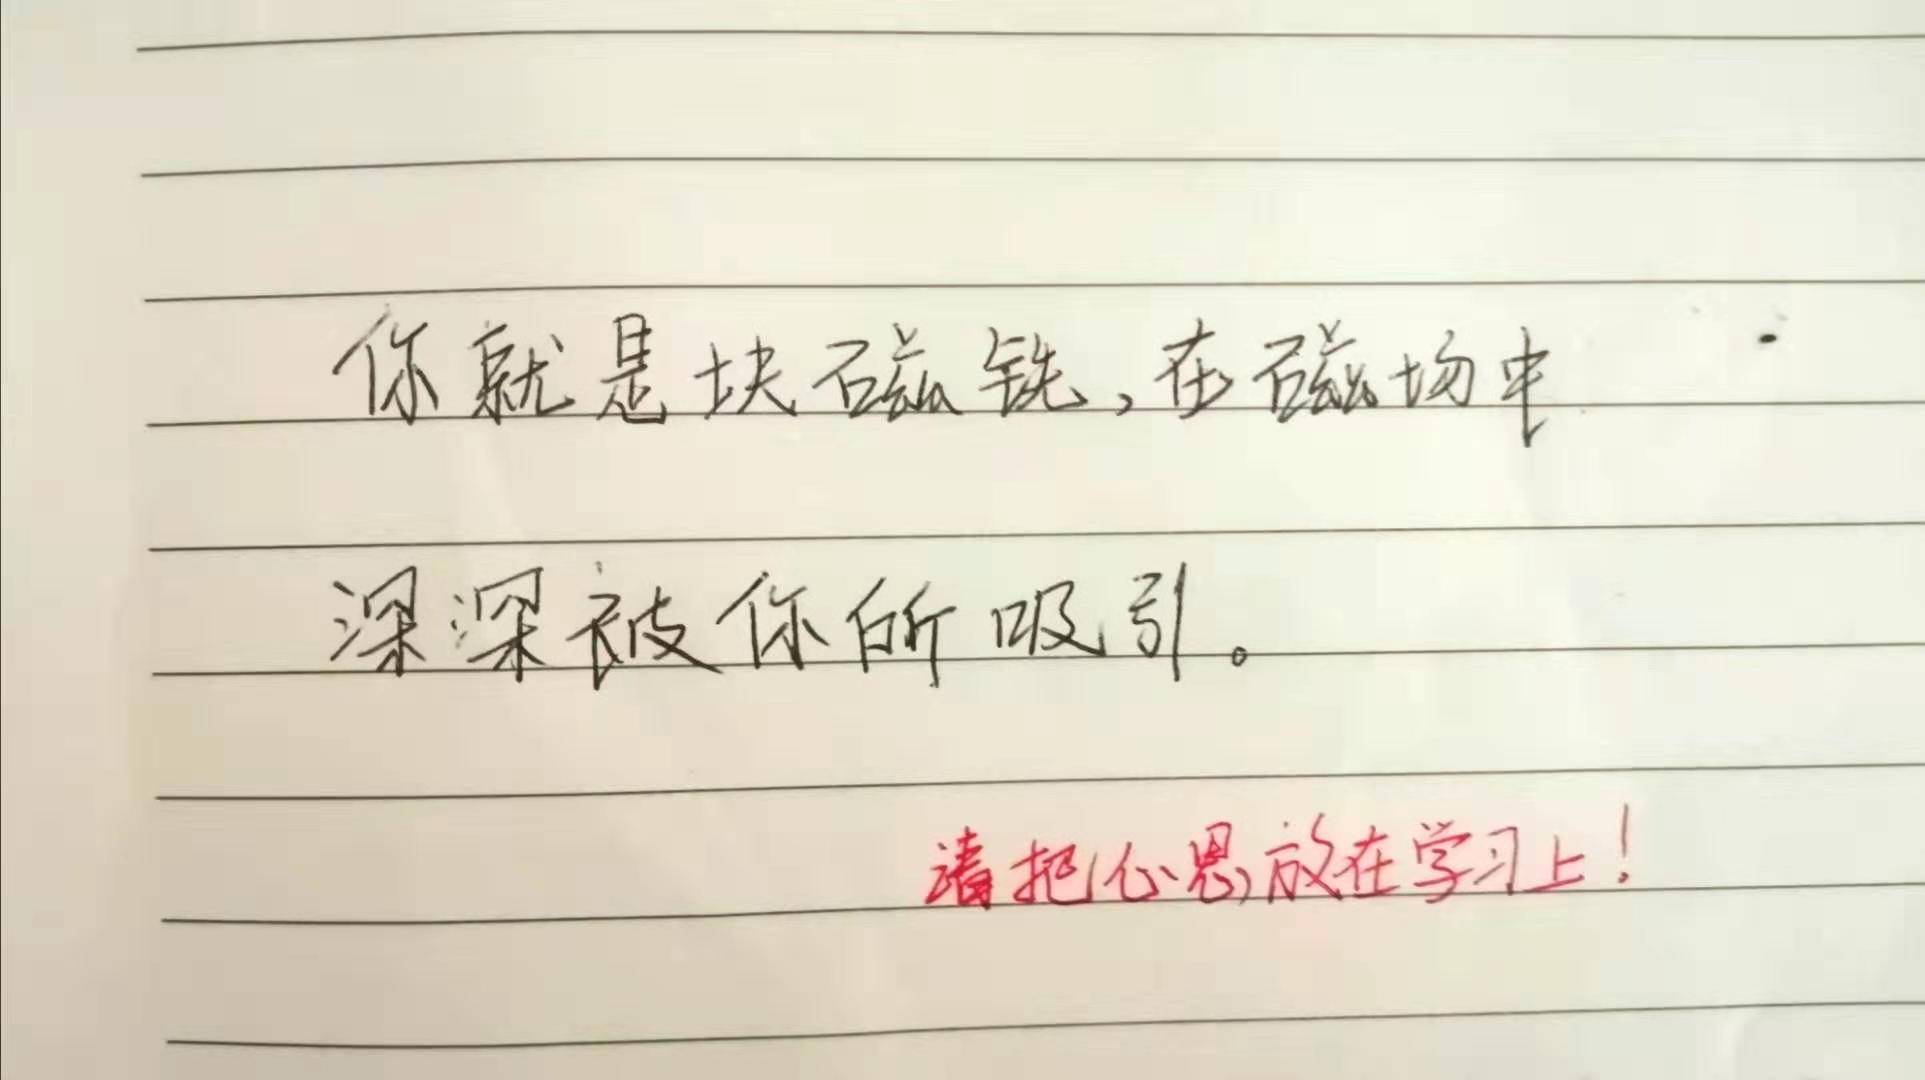 你就是块磁铁，在磁场中
深深被你所吸引。
请把心思放在学习上！